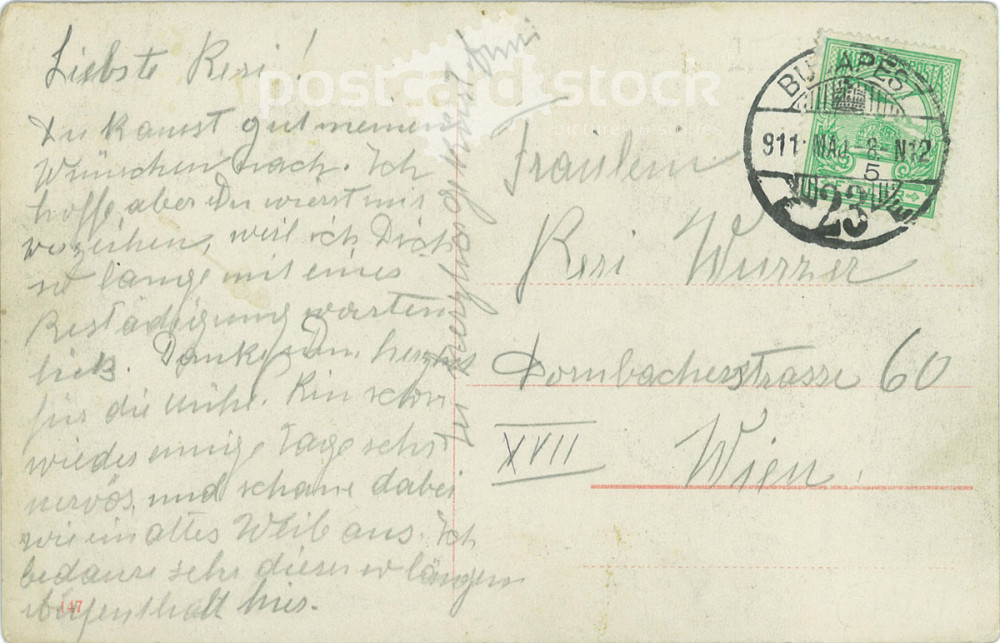 Liebste Resi!
Du kannst gut meinen
Wünschen nach. Ich
hoffe, aber Du wirst mir
verzeihen, weil ich Dich
so lange mit einer
Bestädigung warten
ließ. Danke Dir herzlich
für die Mühe. Bin schon
wieder einige Tage sehr
nervös und schaue dabei
wie ein altes Weib aus. Ich
bedaure sehr diesen so längern
Aufenthalt hier.
Fräulein
Resi Wurzer
Dornbacherstrasse 60
XVII Wien.
BUDAPEST
911 MÁJ 8 N12
5
23
147
postcardstock
pictures & stories